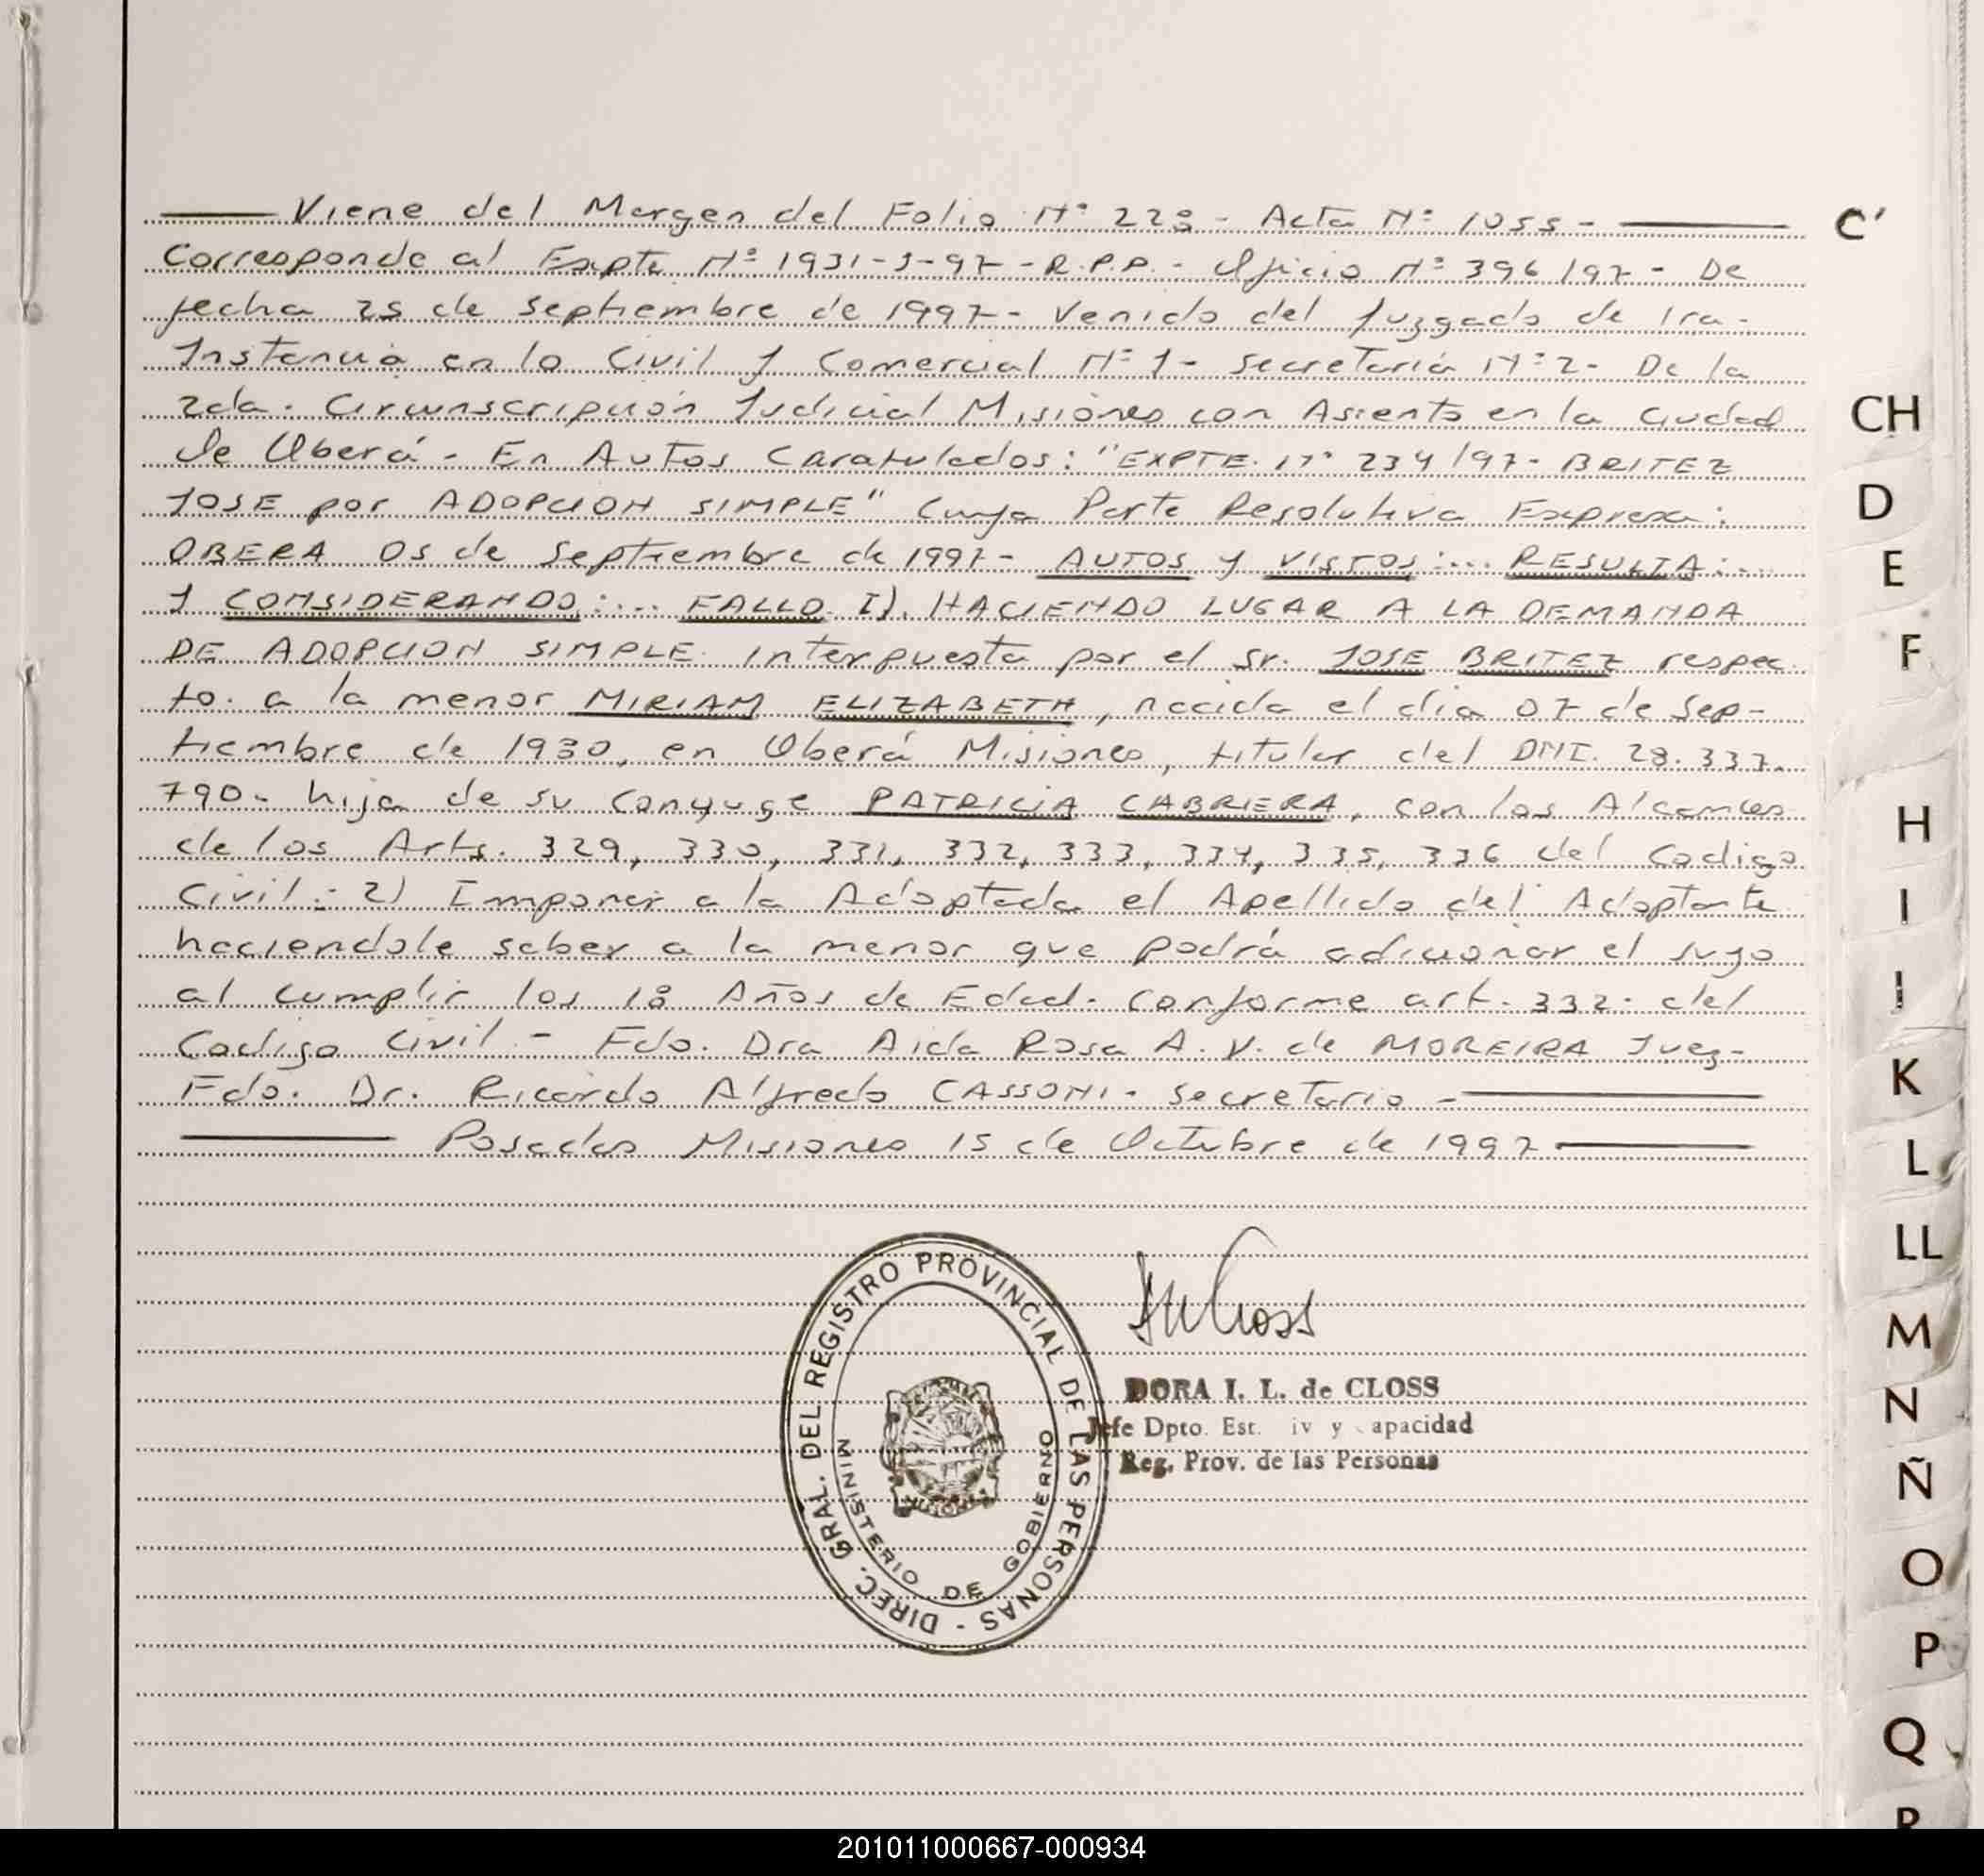 Viene del Margen del Folio Nº 228 - Acta Nº 1055 -
Corresponde al Expte Nº 1931-J-97 - R.P.P. - Oficio Nº 396/97 - De
fecha 25 de Septiembre de 1997 - Venido del Juzgado de 1ra.
Instancia en lo Civil y Comercial Nº 1 - Secretaría Nº 2 - De la
2da. Circunscripción Judicial Misiones con Asiento en la Ciudad
de Oberá - En Autos Caratulados: "EXPTE. Nº 234/97- BRITEZ
JOSE por ADOPCION SIMPLE" Cuya Parte Resolutiva Expresa:
OBERA 05 de Septiembre de 1997 - AUTOS y VISTOS:... RESULTA:...
Y CONSIDERANDO:... FALLO I). HACIENDO LUGAR A LA DEMANDA
DE ADOPCION SIMPLE interpuesta por el Sr. JOSE BRITEZ respec-
to. a la menor MIRIAM ELIZABETH, nacida el dia 07 de Sep-
tiembre de 1980, en Oberá Misiones, titular del DNI. 28.337.
790- hija de su Conyuge PATRICIA CABRERA, con los Alcances
de los Arts. 329, 330, 331, 332, 333, 334, 335, 336 del Codigo
Civil: 2) Imponer a la Adoptada el Apellido del Adoptante
haciendole saber a la menor que podrá adicionar el suyo
al cumplir los 18 Años de Edad. Conforme art. 332: del
Codigo Civil - Fdo. Dra Aida Rosa A. V. de MOREIRA Juez-
Fdo. Dr. Ricardo Alfredo CASSONI - Secretario -
Posadas Misiones 15 de Octubre de 1997
DIREC. GRAL. DEL REGISTRO PROVINCIAL DE LAS PERSONAS -
MINISTERIO DE GOBIERNO
MISIONES
DORA I. L. de CLOSS
Jefe Dpto. Est. iv y apacidad
Reg. Prov. de las Personas
C
CH
D
E
F
H
I
J
K
L
LL
M
N
Ñ
O
P
Q
R
201011000667-000934